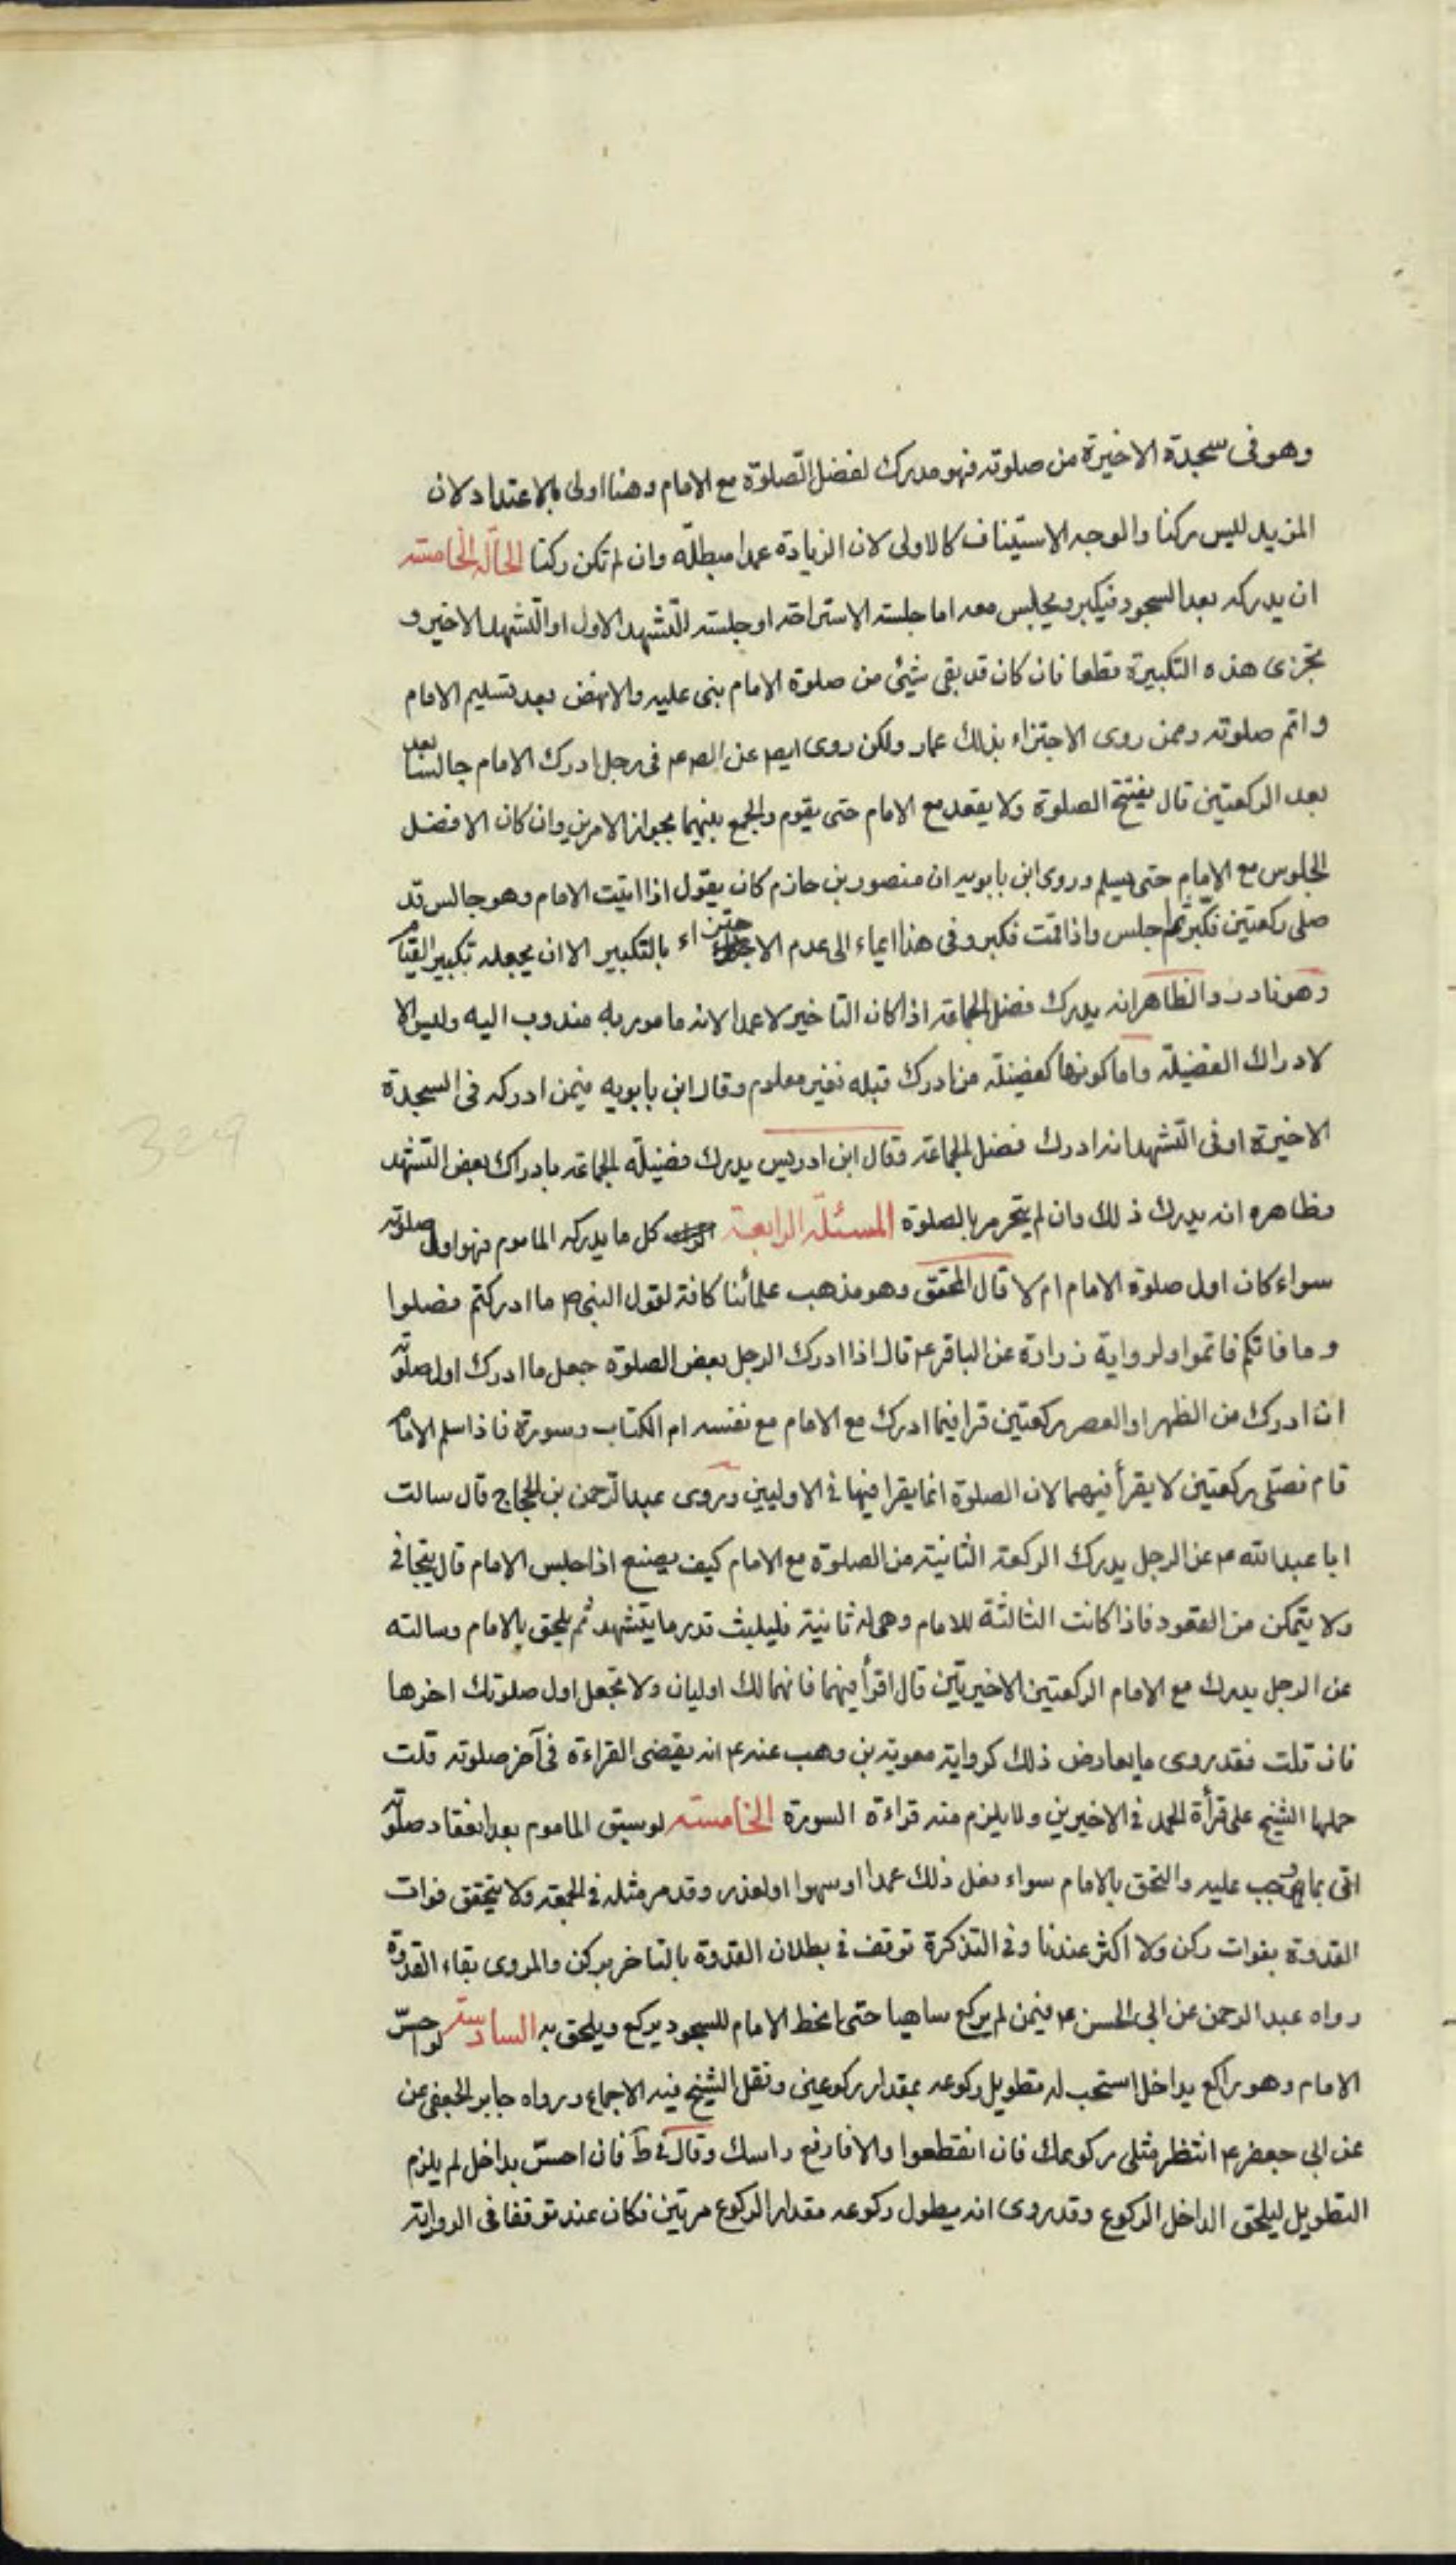 وهو فى سجدة الاخيرة من صلوته فهو مدرك لفضل الصلوة مع الامام وهنا اولى بالاعتداد لان
المزيد ليس ركنا والوجه الاستيناف كالاولى لان الزيادة عمدا مبطلة وان لم تكن ركنا الحالة الخامسة
ان يدركه بعد السجود فيكبر ويجلس معه اما جلسته الاستراحة او جلسته التشهد الاول او التشهد الاخير و
تجزى هذه التكبيرة قطعا فان كان قد بقى شئ من صلوة الامام بنى عليه والا نهض بعد تسليم الامام
واتم صلوته وممن روى الاجتزاء بذلك عمار ولكن روى ايض عن الص ع فى رجل ادرك الامام جالسا بعد
بعد الركعتين قال يفتتح الصلوة ولا يقعد مع الامام حتى يقوم والجمع بينهما بجواز الامرين وان كان الافضل
الجلوس مع الامام حتى يسلم وروى ابن بابويه ان منصور بن حازم كان يقول اذا اتيت الامام وهو جالس قد
صلى ركعتين فكبر ثم اجلس واذا قمت فكبر وفى هذا ايماء الى عدم الاجتزاء بالتكبير الا ان يجعله تكبير القيام
وهو نادر والظاهر انه يدرك فضل الجماعة اذا كان التاخير لا عمدا لانه مامور به مندوب اليه وليس الا
لادراك الفضيلة واما كونها كفضيلة من ادرك قبله فغير معلوم وقال ابن بابويه فيمن ادركه فى السجدة
الاخيرة او فى التشهد انه ادرك فضل الجماعة وقال ابن ادريس يدرك فضيلة الجماعة بادراك بعض التشهد
وظاهره انه يدرك ذلك وان لم يتحرم بالصلوة المسئلة الرابعة كل ما يدركه الماموم فهو اول صلوته
سواء كان اول صلوة الامام ام لا قال المحقق وهو مذهب علمائنا كافة لقول النبى ص ما ادركتم فصلوا
وما فاتكم فاتموا ولرواية زرارة عن الباقر ع قال اذا ادرك الرجل بعض الصلوة جعل ما ادرك اول صلوته
ان ادرك من الظهر او العصر ركعتين قرا فيما ادرك مع الامام مع نفسه ام الكتاب وسورة فاذا سلم الامام
قام فصلى ركعتين لا يقرأ فيهما لان الصلوة انما يقرا فيها فى الاوليين وروى عبد الرحمن بن الحجاج قال سالت
ابا عبد الله ع عن الرجل يدرك الركعة الثانية من الصلوة مع الامام كيف يصنع اذا جلس الامام قال يتجافى
ولا يتمكن من القعود فاذا كانت الثالثة للامام وهى له ثانية فليلبث قدر ما يتشهد ثم يلحق بالامام وسالته
عن الرجل يدرك مع الامام الركعتين الاخيرتين قال اقرأ فيهما فانهما لك اوليان ولا تجعل اول صلوتك اخرها
فان قلت فقد روى ما يعارض ذلك كرواية معوية بن وهب عنه ع انه يقضى القراءة فى آخر صلوته قلت
حملها الشيخ على قرأة الحمد فى الاخيرين ولا يلزم منه قراءة السورة الخامسة لو سبق الماموم بعد انعقاد صلوته
اتى بما وجب عليه والتحق بالامام سواء فعل ذلك عمدا او سهوا او لعذر وقد مر مثله فى الجمعة ولا يتحقق فوات
القدوة بفوات ركن ولا اكثر عندنا وفى التذكرة توقف فى بطلان القدوة بالتاخر بركن والمروى بقاء القدوة
رواه عبد الرحمن عن ابى الحسن ع فيمن لم يركع ساهيا حتى انحط الامام للسجود يركع ويلحق به السادسة لو احسّ
الامام وهو راكع بداخل استحب له تطويل ركوعه بمقدار ركوعين ونقل الشيخ فيه الاجماع ورواه جابر الجعفى عن
عن ابى جعفر ع انتظر مثلى ركوعك فان انقطعوا والا فارفع راسك وقال فى ط فان احسّ بداخل لم يلزم
التطويل ليلحق الداخل الركوع وقد روى انه يطول ركوعه مقدار الركوع مرتين فكان عنده توقفا فى الرواية
329